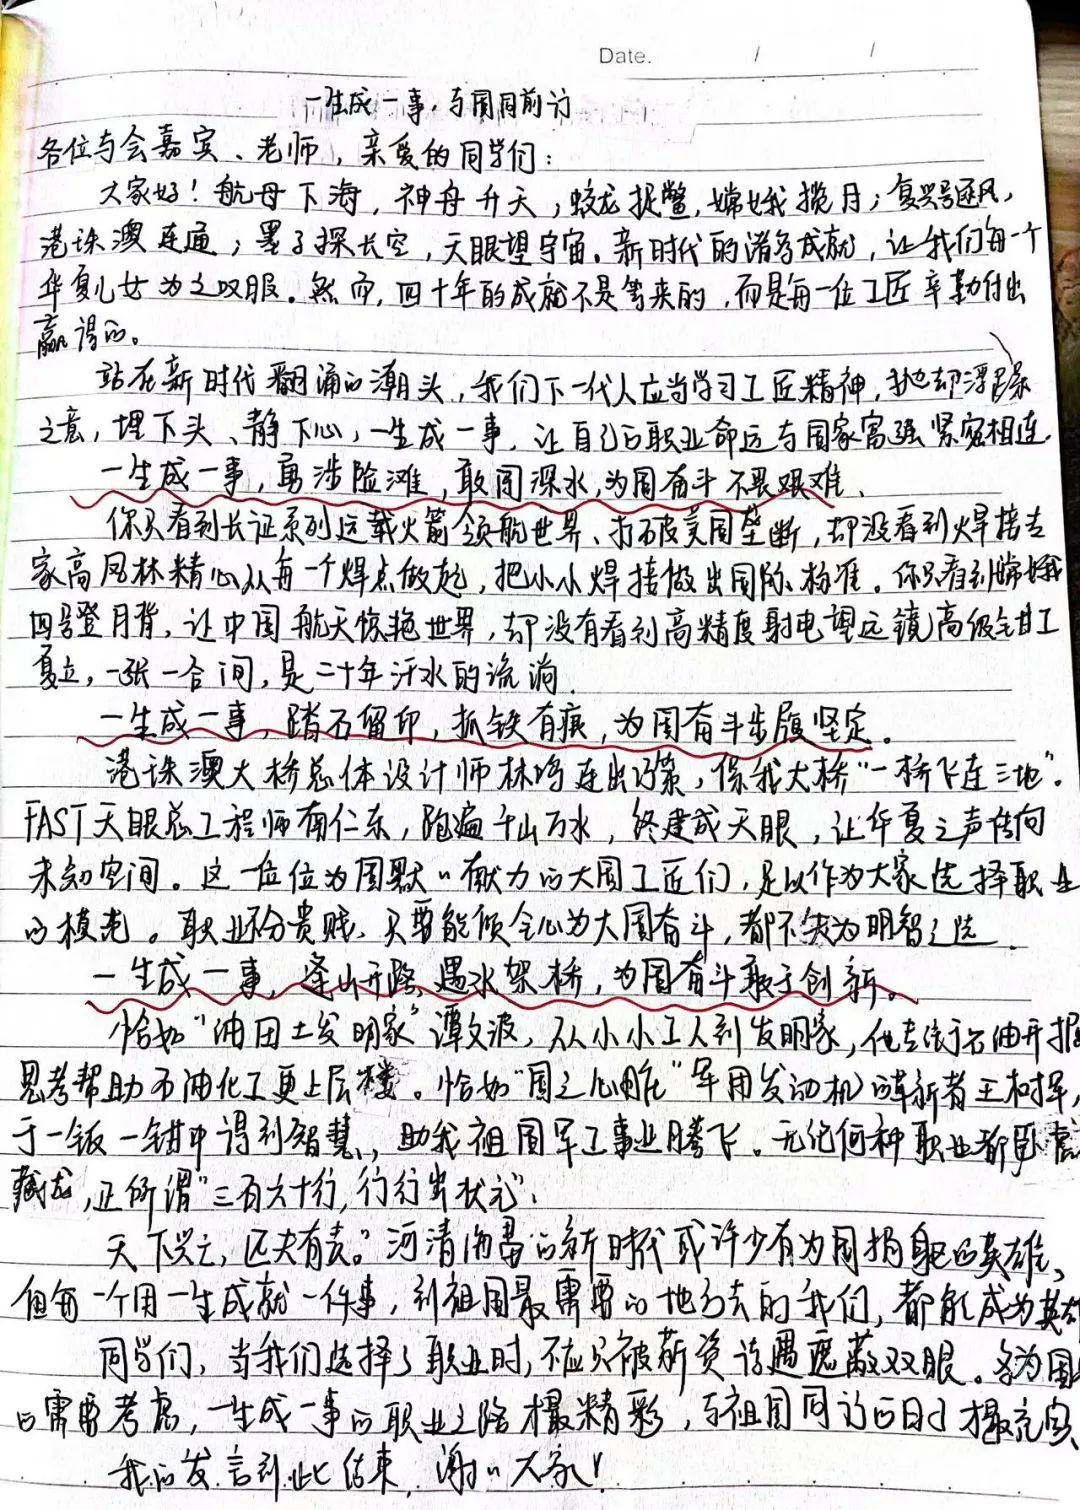 Date. / /
一生成一事,与国同前行
各位与会嘉宾、老师,亲爱的同学们:
大家好!航母下海,神舟升天,蛟龙捉鳖,嫦娥揽月;复兴号逐风,
港珠澳连通;墨子探长空,天眼望宇宙。新时代的诸多成就,让我们每一个
华夏儿女为之叹服。然而,四十年的成就不是等来的,而是每一位工匠辛勤付出
赢得的。
站在新时代翻涌的潮头,我们下一代人应当学习工匠精神,抛却浮躁
之意,埋下头、静下心,一生成一事,让自己的职业命运与国家富强紧密相连.
一生成一事,勇涉险滩,敢闯深水,为国奋斗不畏艰难.
你只看到长征系列运载火箭领航世界、打破美国垄断,却没看到焊接专
家高凤林精心从每一个焊点做起,把小小焊接做出国际标准。你只看到嫦娥
四号登月背,让中国航天惊艳世界,却没有看到高精度射电望远镜高级钳工
夏立,一张一合间,是二十年汗水的流淌.
一生成一事,踏石留印,抓铁有痕,为国奋斗步履坚定。
港珠澳大桥总体设计师林鸣连出巧策,保我大桥“一桥飞连三地”.
FAST天眼总工程师南仁东,跑遍千山万水,终建成天眼,让华夏之声传向
未知空间。这一位位为国默〃献力的大国工匠们,足以作为大家选择职业
的模范。职业不分贵贱,只要能倾全心为大国奋斗,都不失为明智之选.
一生成一事,逢山开路,遇水架桥,为国奋斗敢于创新。
恰如“油田土发明家”谭文波,从小小工人到发明家,他专注于石油开掘
思考帮助石油化工更上层楼。恰如“国之心脏”军用发动机革新者王树军,
于一钣一钳中得到智慧,助我祖国军工事业腾飞。无论何种职业都卧虎
藏龙,正所谓“三百六十行,行行出状元”.
天下兴亡,匹夫有责。”河清海晏的新时代或许少有为国捐躯的英雄,
但每一个用一生成就一件事,到祖国最需要的地方去的我们,都能成为英雄
同学们,当我们选择了职业时,不应只被薪资待遇遮蔽双眼。多为国
的需要考虑,一生成一事的职业之路才最精彩,与祖国同行的日子才最充实.
我的发言到此结束,谢〃大家!